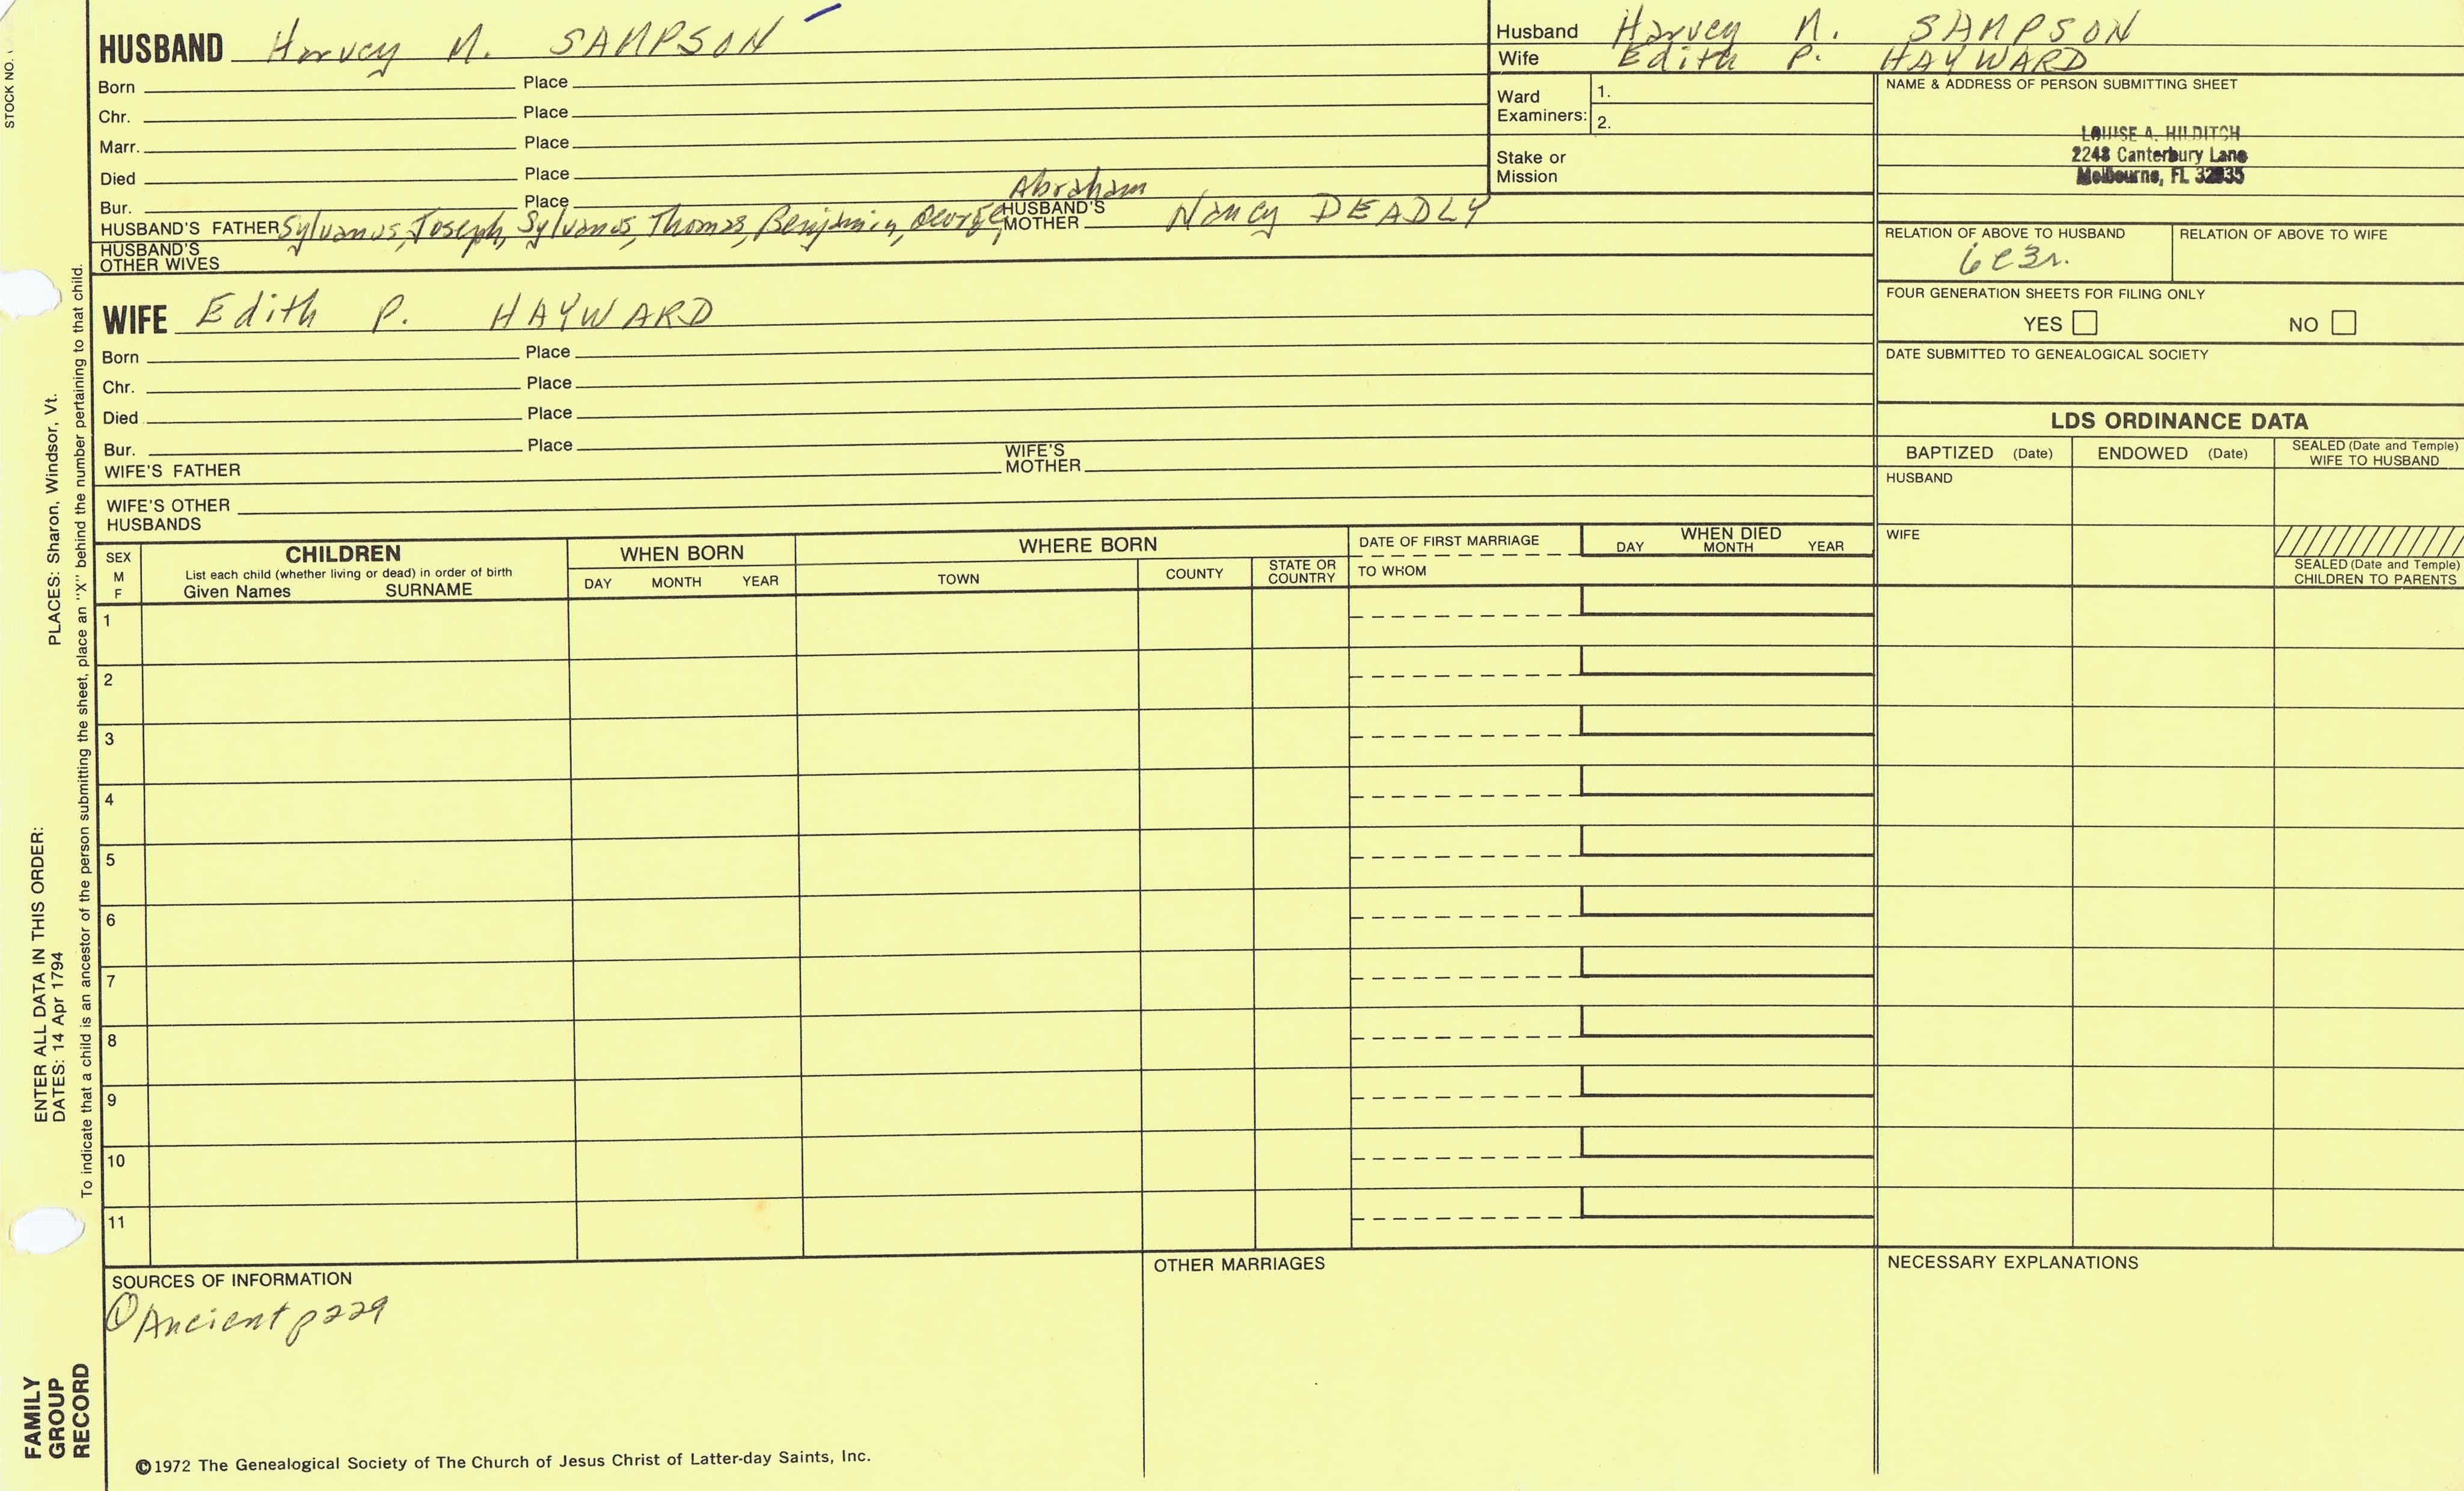 STOCK NO.
HUSBAND Harvey M. SAMPSON
Born Place
Chr. Place
Marr. Place
Died Place
Bur. Place
Abraham
HUSBAND'S FATHER Sylvanus, Joseph, Sylvanus, Thomas, Benjamin, George, HUSBAND'S MOTHER Nancy DEADLY
HUSBAND'S OTHER WIVES
WIFE Edith P. HAYWARD
Born Place
Chr. Place
Died Place
Bur. Place
WIFE'S FATHER WIFE'S MOTHER
WIFE'S OTHER HUSBANDS
Husband Harvey M. SAMPSON
Wife Edith P. HAYWARD
Ward Examiners: 1.
2.
Stake or Mission
NAME & ADDRESS OF PERSON SUBMITTING SHEET
LOUISE A. HILDITCH
2248 Canterbury Lane
Melbourne, FL 32935
RELATION OF ABOVE TO HUSBAND RELATION OF ABOVE TO WIFE
6c3r.
FOUR GENERATION SHEETS FOR FILING ONLY
YES NO
DATE SUBMITTED TO GENEALOGICAL SOCIETY
LDS ORDINANCE DATA
BAPTIZED (Date) ENDOWED (Date) SEALED (Date and Temple) WIFE TO HUSBAND
HUSBAND
WIFE
SEALED (Date and Temple) CHILDREN TO PARENTS
SEX M F
CHILDREN
List each child (whether living or dead) in order of birth
Given Names SURNAME
WHEN BORN
DAY MONTH YEAR
WHERE BORN
TOWN COUNTY STATE OR COUNTRY
DATE OF FIRST MARRIAGE
TO WHOM
WHEN DIED
DAY MONTH YEAR
1
2
3
4
5
6
7
8
9
10
11
SOURCES OF INFORMATION
① Ancient p229
OTHER MARRIAGES
NECESSARY EXPLANATIONS
©1972 The Genealogical Society of The Church of Jesus Christ of Latter-day Saints, Inc.
FAMILY GROUP RECORD
ENTER ALL DATA IN THIS ORDER:
DATES: 14 Apr 1794 PLACES: Sharon, Windsor, Vt.
To indicate that a child is an ancestor of the person submitting the sheet, place an "X" behind the number pertaining to that child.